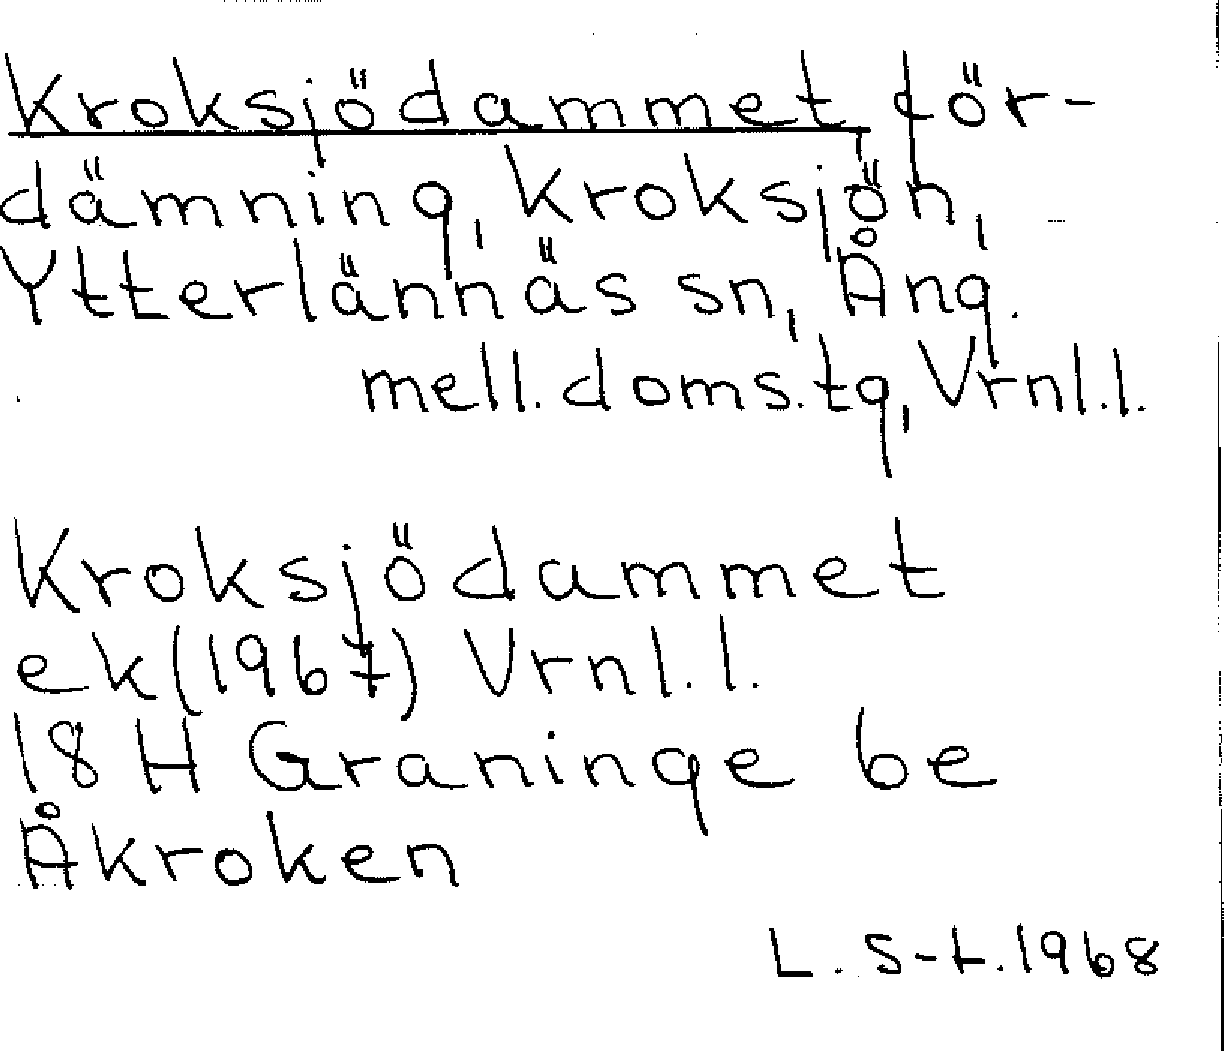 Kroksjödammet, för-
dämning, Kroksjön,
Ytterlännäs sn, Ång.
mell. doms. tg, Vrnl.l.
Kroksjödammet
ek (1967) Vrnl.l.
18 H Graninge be
Åkroken
L. S-t. 1968